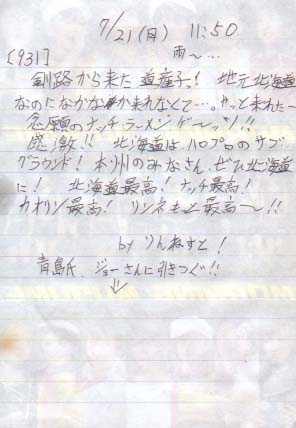 7/21(日) 11:50
雨〜…
[931]
釧路から来た道産子っ! 地元北海道
なのになかなか来れなくて…。やっと来れたー
念願のナッチラーメンゲ〜ッツ!!
感激!! 北海道は、ハロプロのサブ
グラウンド! 本州のみなさん、ぜひ北海道
に! 北海道最高! ナッチ最高!
カオリン最高! リンネもっと最高〜!!
by りんねすと!
青島氏、ジョーさんに引きつぐ!!